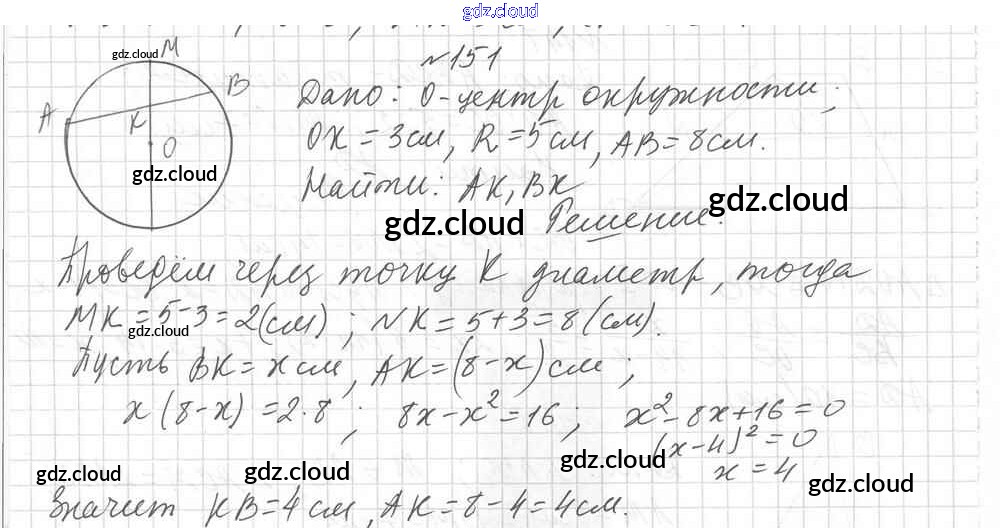 gdz.cloud
№151
gdz.cloud M
A B
K
O
gdz.cloud
Дано: O-центр окружности;
OK = 3см, R = 5см, AB = 8см.
Найти: AK, BK
gdz.cloud
gdz.cloud
Решение:
Проведём через точку K диаметр, тогда
MK = 5-3 = 2(см); NK = 5+3 = 8(см).
gdz.cloud
Пусть BK = x см, AK = (8-x) см;
x(8-x) = 2·8; 8x-x² = 16; x²-8x+16 = 0
(x-4)² = 0
x = 4
gdz.cloud gdz.cloud gdz.cloud gdz.cloud
Значит KB = 4см, AK = 8-4 = 4см.